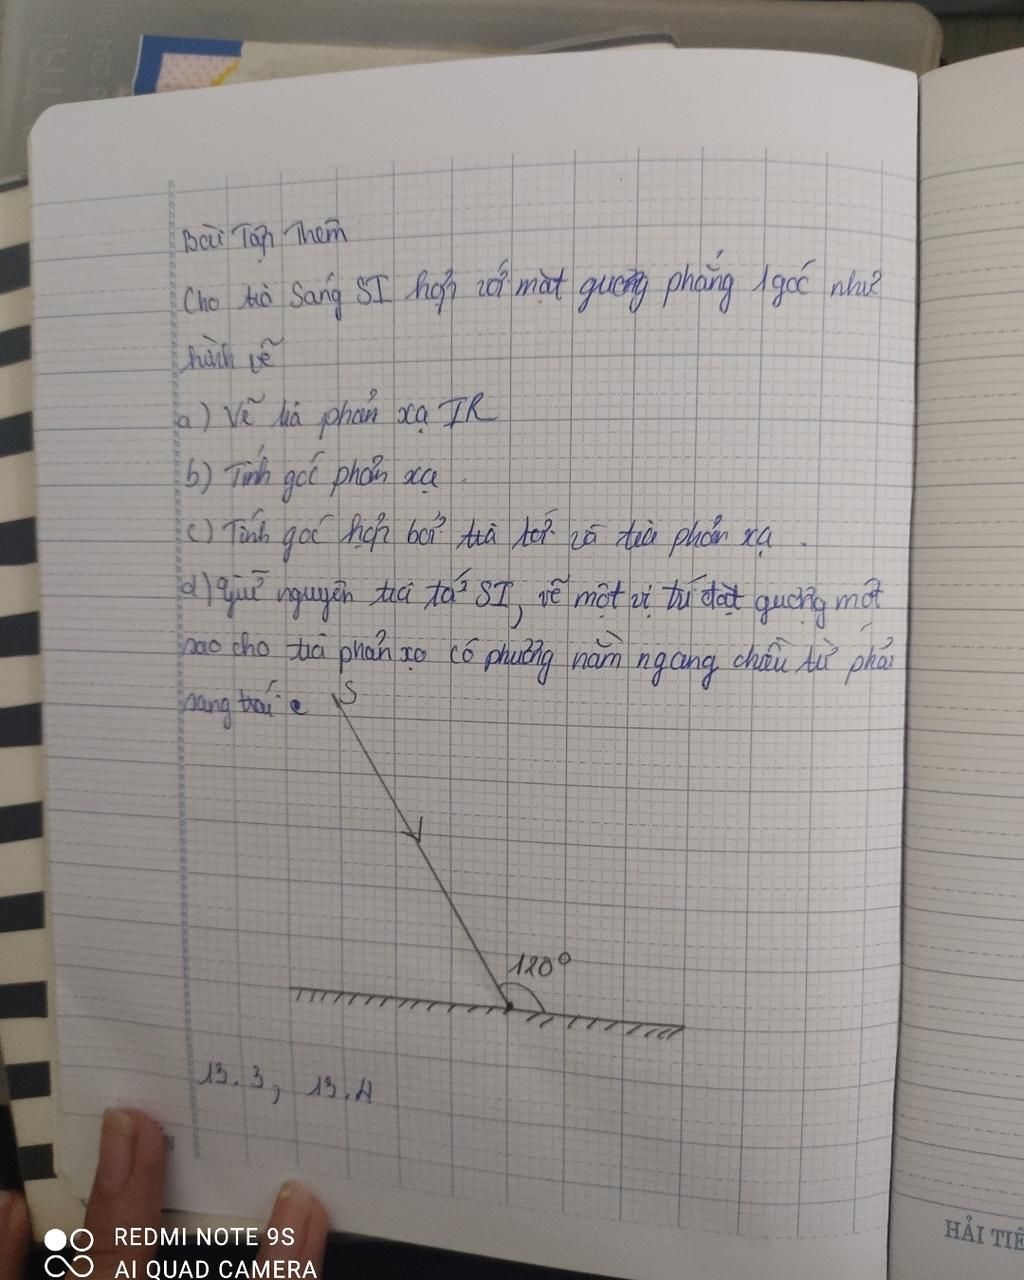 Bài Tập Thêm
Cho tia Sáng SI hợp với mặt gương phẳng 1 góc như
hình vẽ
a) Vẽ tia phản xạ IR
b) Tính góc phản xạ.
c) Tính góc hợp bởi tia tới và tia phản xạ.
d) Giữ nguyên tia tới SI, vẽ một vị trí đặt gương một
sao cho tia phản xạ có phương nằm ngang chiều từ phải
sang trái.
S
120°
13.3, 13.4
HẢI TIẾ
REDMI NOTE 9S
AI QUAD CAMERA